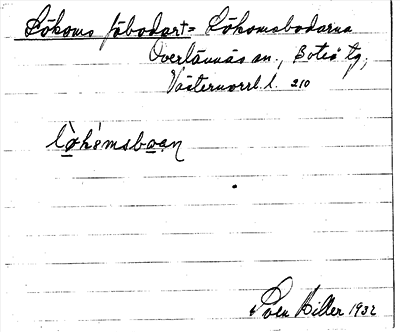 Lökoms fäbodart = Lökomsbodarna
Överlännäs sn., Boteå tg,
Västernorrl. l. 210
lò̱kémsbo̱a̱ṉ
Sven Hiller 1932